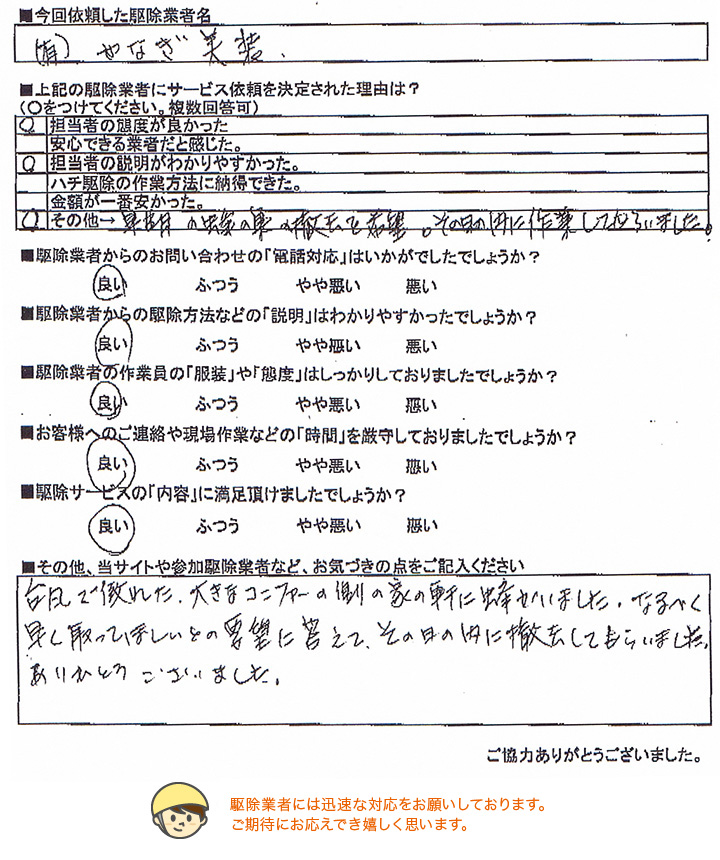 ■今回依頼した駆除業者名
(有) やなぎ美装.
■上記の駆除業者にサービス依頼を決定された理由は？
(○をつけてください。複数回答可)
○ 担当者の態度が良かった
安心できる業者だと感じた。
○ 担当者の説明がわかりやすかった。
ハチ駆除の作業方法に納得できた。
金額が一番安かった。
○ その他→早期の蜂の巣の撤去を希望。その日の内に作業してもらいました。
■駆除業者からのお問い合わせの「電話対応」はいかがでしたでしょうか？
良い ふつう やや悪い 悪い
■駆除業者からの駆除方法などの「説明」はわかりやすかったでしょうか？
良い ふつう やや悪い 悪い
■駆除業者の作業員の「服装」や「態度」はしっかりしておりましたでしょうか？
良い ふつう やや悪い 悪い
■お客様へのご連絡や現場作業などの「時間」を厳守しておりましたでしょうか？
良い ふつう やや悪い 悪い
■駆除サービスの「内容」に満足頂けましたでしょうか？
良い ふつう やや悪い 悪い
■その他、当サイトや参加駆除業者など、お気づきの点をご記入ください
台風で倒れた、大きなコニファーの側の家の軒に蜂がいました。なるべく
早く取ってほしいとの要望に答えて、その日の内に撤去してもらいました。
ありがとうございました。
ご協力ありがとうございました。
駆除業者には迅速な対応をお願いしております。
ご期待にお応えでき嬉しく思います。